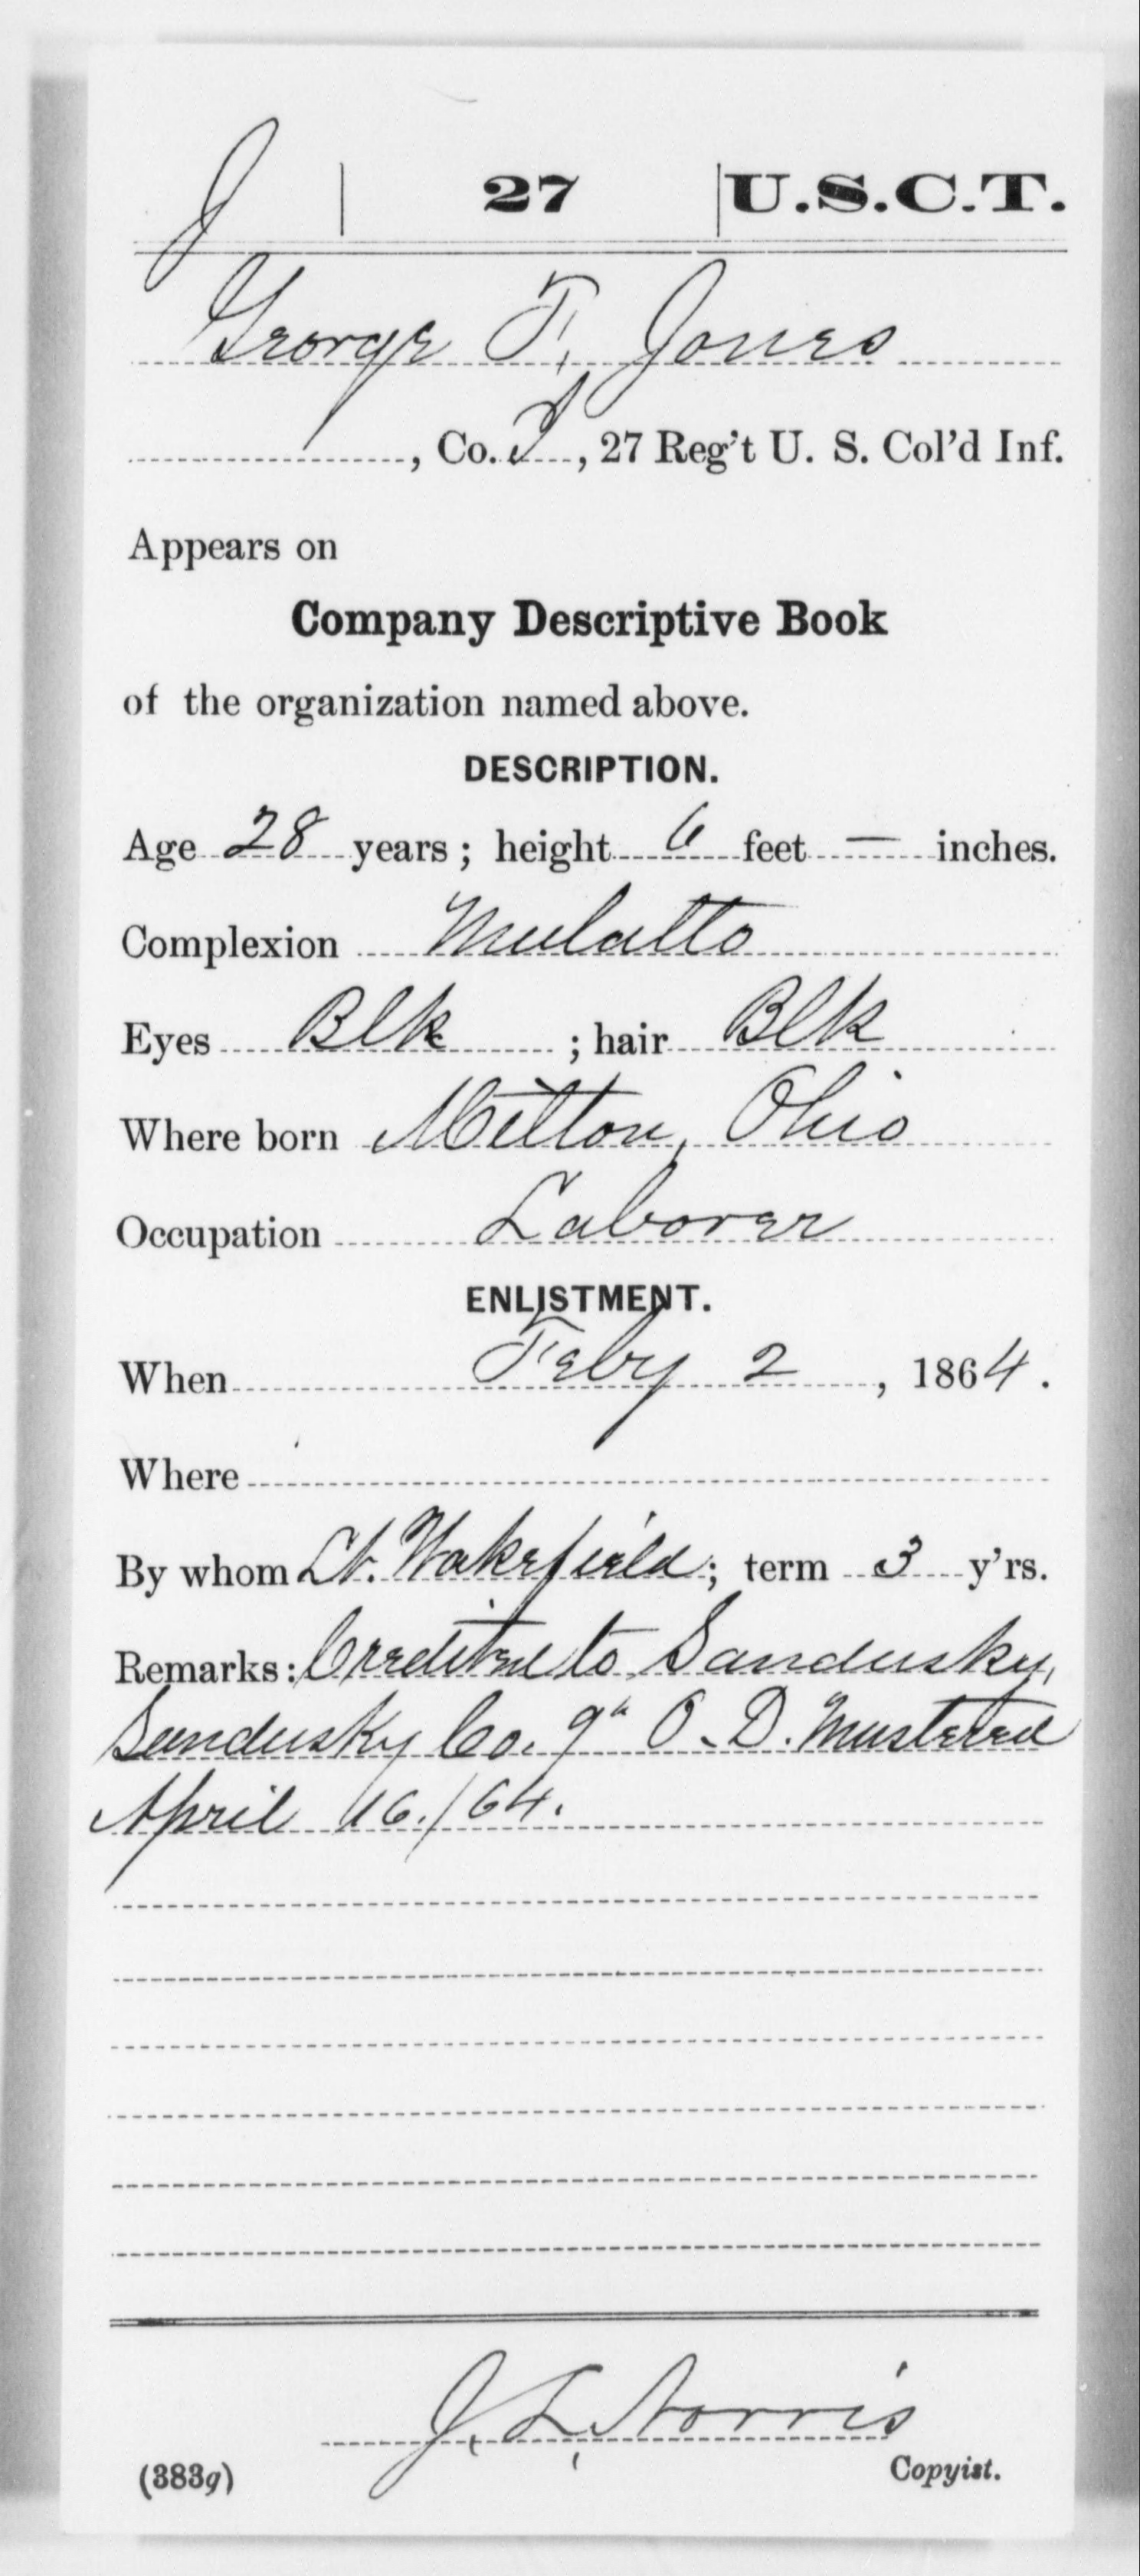 J 27 U.S.C.T.
George F. Jones
, Co. I, 27 Reg't U. S. Col'd Inf.
Appears on
Company Descriptive Book
of the organization named above.
DESCRIPTION.
Age 28 years; height 6 feet — inches.
Complexion Mulatto
Eyes Blk; hair Blk
Where born Milton, Ohio
Occupation Laborer
ENLISTMENT.
When Feby 2, 1864.
Where
By whom Lt. Wakefield; term 3 y'rs.
Remarks: Credited to Sandusky,
Sandusky Co. 9" O. D. Mustered
April 16./64.
J. L. Norris
(383g) Copyist.